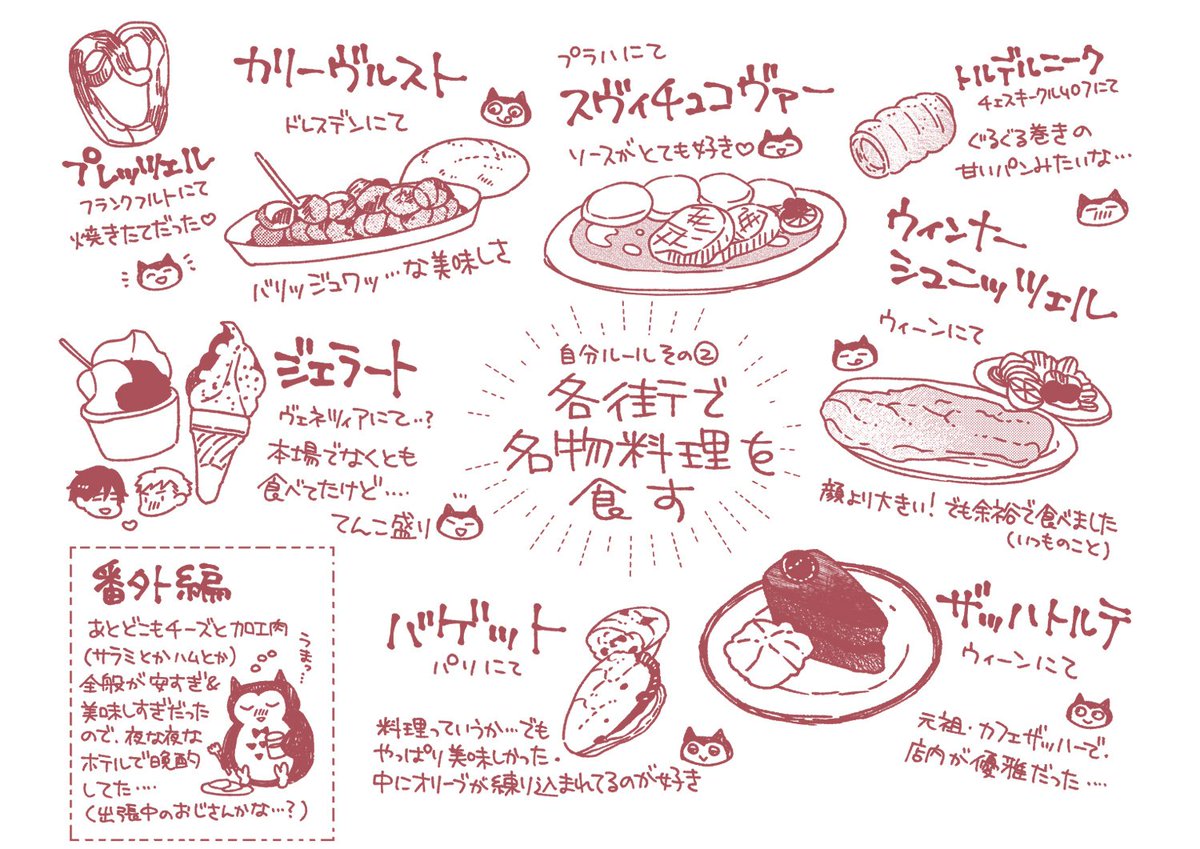 プレッツェル
フランクフルトにて
焼きたてだった♡
カリーヴルスト
ドレスデンにて
バリッジュワッ…な美味しさ
プラハにて
スヴィチュコヴァー
ソースがとても好き♡
トルデルニーク
チェスキークルムロフにて
ぐるぐる巻きの
甘いパンみたいな…
ウィンナー
シュニッツェル
ウィーンにて
顔より大きい！でも余裕で食べました
（いつものこと）
自分ルールその②
各街で
名物料理を
食す
ジェラート
ヴェネツィアにて…？
本場でなくとも
食べてたけど‥‥
てんこ盛り
番外編
あとどこもチーズと加工肉
（サラミとかハムとか）
全般が安すぎ&
美味しすぎだった
ので、夜な夜な
ホテルで晩酌
してた‥‥
（出張中のおじさんかな…？）
うまっ…
バゲット
パリにて
料理っていうか…でも
やっぱり美味しかった．
中にオリーブが練り込まれてるのが好き
ザッハトルテ
ウィーンにて
元祖・カフェザッハーで．
店内が優雅だった‥‥